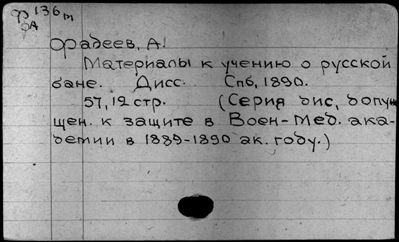 Ф 136 m
ФА
Фадеев, А.
Материалы к учению о русской
бане. Дисс. Спб, 1890.
57, 12 стр. (Серия дис, допу
щен. к защите в Воен-Мед. ака-
демии в 1889-1890 ак. году.)